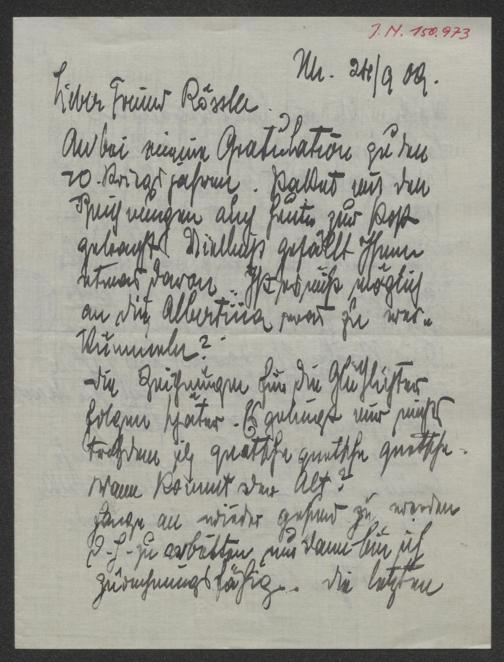 J. N. 150.973
24/9 09.
Lieber Freund Rössler.
Anbei meine Gratulation zu den
10. Kriegsjahren. Paket mit den
Zeichnungen auch heute zur Post
gebracht. Vielleicht gefällt Ihnen
etwas davon. Ist es nicht möglich
an die Albertina was zu ver-
kümmeln?
die Zeichnungen für die Glühlichter
folgen später. Es gelingt mir nichts
trotzdem ich quetsche quetsche quetsche.
Wann kommt der Akt?
Fange an wieder gesund zu werden
d-h- zu arbeiten, nur dann bin ich
zurechnungsfähig.. die letzten